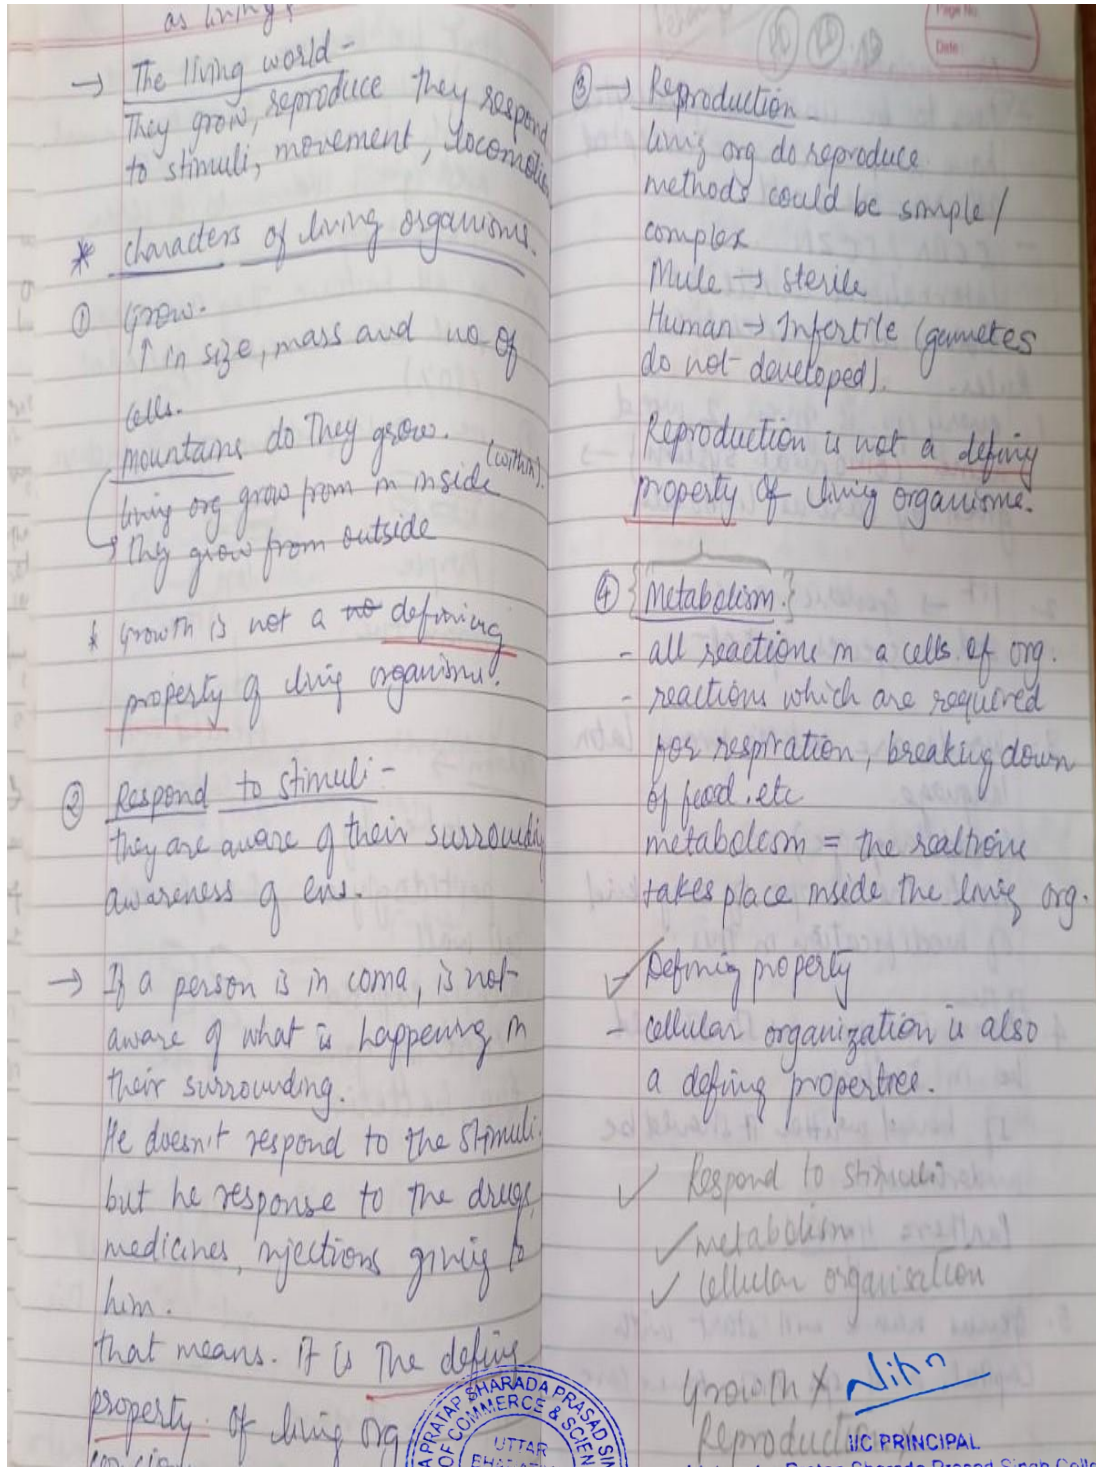 as living?
→ The living world -
They grow, reproduce they respond
to stimuli, movement, locomotion
* characters of living organisms.
① Grow.
↑ in size, mass and no. of
cells.
mountains do they grow.
living org grow from in inside (within).
They grow from outside
* Growth is not a no defining
property of living organisms.
② Respond to stimuli -
they are aware of their surrounding
awareness of env.
→ If a person is in coma, is not
aware of what is happening in
their surrounding.
He doesn't respond to the stimuli.
but he response to the drugs,
medicines, injections giving to
him.
that means. it is The defing
property. of living org
Page No.
Date:
③ → Reproduction -
living org do reproduce
methods could be simple /
complex
Mule → sterile
Human → Infertile (gametes
do not developed).
Reproduction is not a defing
property of living organisms.
④ {Metabolism.}
- all reactions in a cells of org.
- reactions which are required
for respiration, breaking down
of food. etc
metabolism = the realtions
takes place inside the living org.
- Defining property
- cellular organization is also
a defing propertree.
✓ Respond to stimuli
✓ metabolism
✓ cellular organisation
Growth ×
Nitin
Reproduction
I/C PRINCIPAL
PRATAP SHARADA PRASAD SIN
OF COMMERCE & SCIEN
UTTAR
Pratap Sharada Prasad Singh Colle